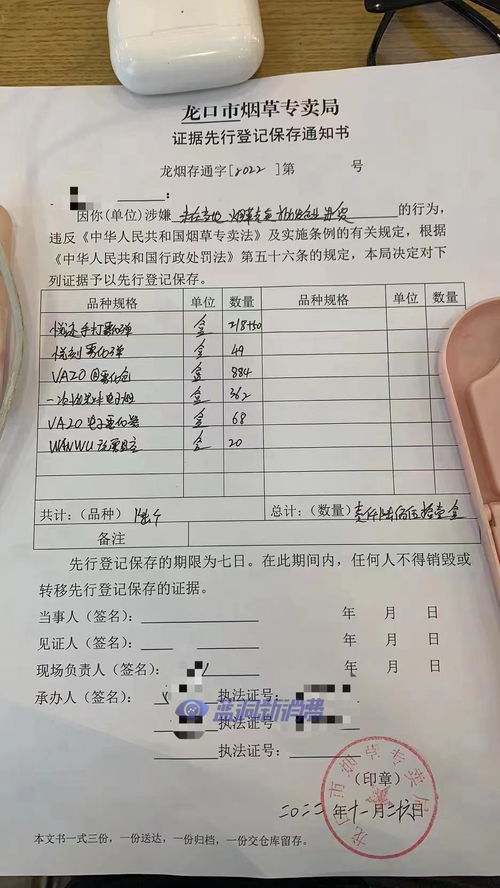 龙口市烟草专卖局
证据先行登记保存通知书
龙烟存通字[2022]第 号
：
因你(单位)涉嫌 的行为，
违反《中华人民共和国烟草专卖法》及实施条例的有关规定，根据
《中华人民共和国行政处罚法》第五十六条的规定，本局决定对下
列证据予以先行登记保存。
品种规格 单位 数量 品种规格 单位 数量
盒 218+50
悦刻雾化弹 盒 49
VAZO 雾化 盒 884
一次性 电子烟 盒 362
VAZO电子雾化器 盒 68
WANWU 盒 20
共计：（品种） 陆个 总计：（数量） 壹仟陆佰 拾壹盒
备注
先行登记保存的期限为七日。在此期间内，任何人不得销毁或
转移先行登记保存的证据。
当事人（签名）： 年 月 日
见证人（签名）： 年 月 日
现场负责人（签名）： 年 月 日
承办人（签名）： 执法证号：
蓝洞新消费
执法证号：
执法证号：
（印章）
龙口市烟草专卖局
二〇二二年十一月二十六日
本文书一式三份，一份送达，一份归档，一份交仓库留存。